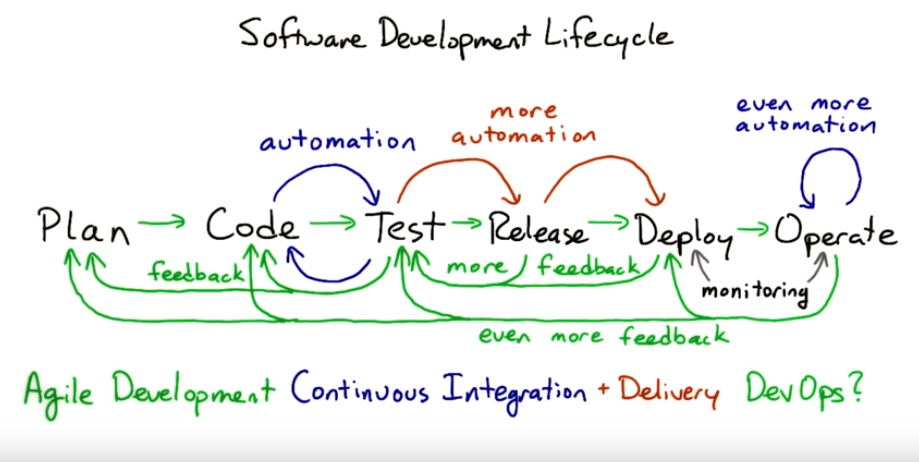 Software Development Lifecycle
even more
automation
more
automation
automation
Plan Code Test Release Deploy Operate
feedback more feedback
monitoring
even more feedback
Agile Development Continuous Integration + Delivery DevOps?